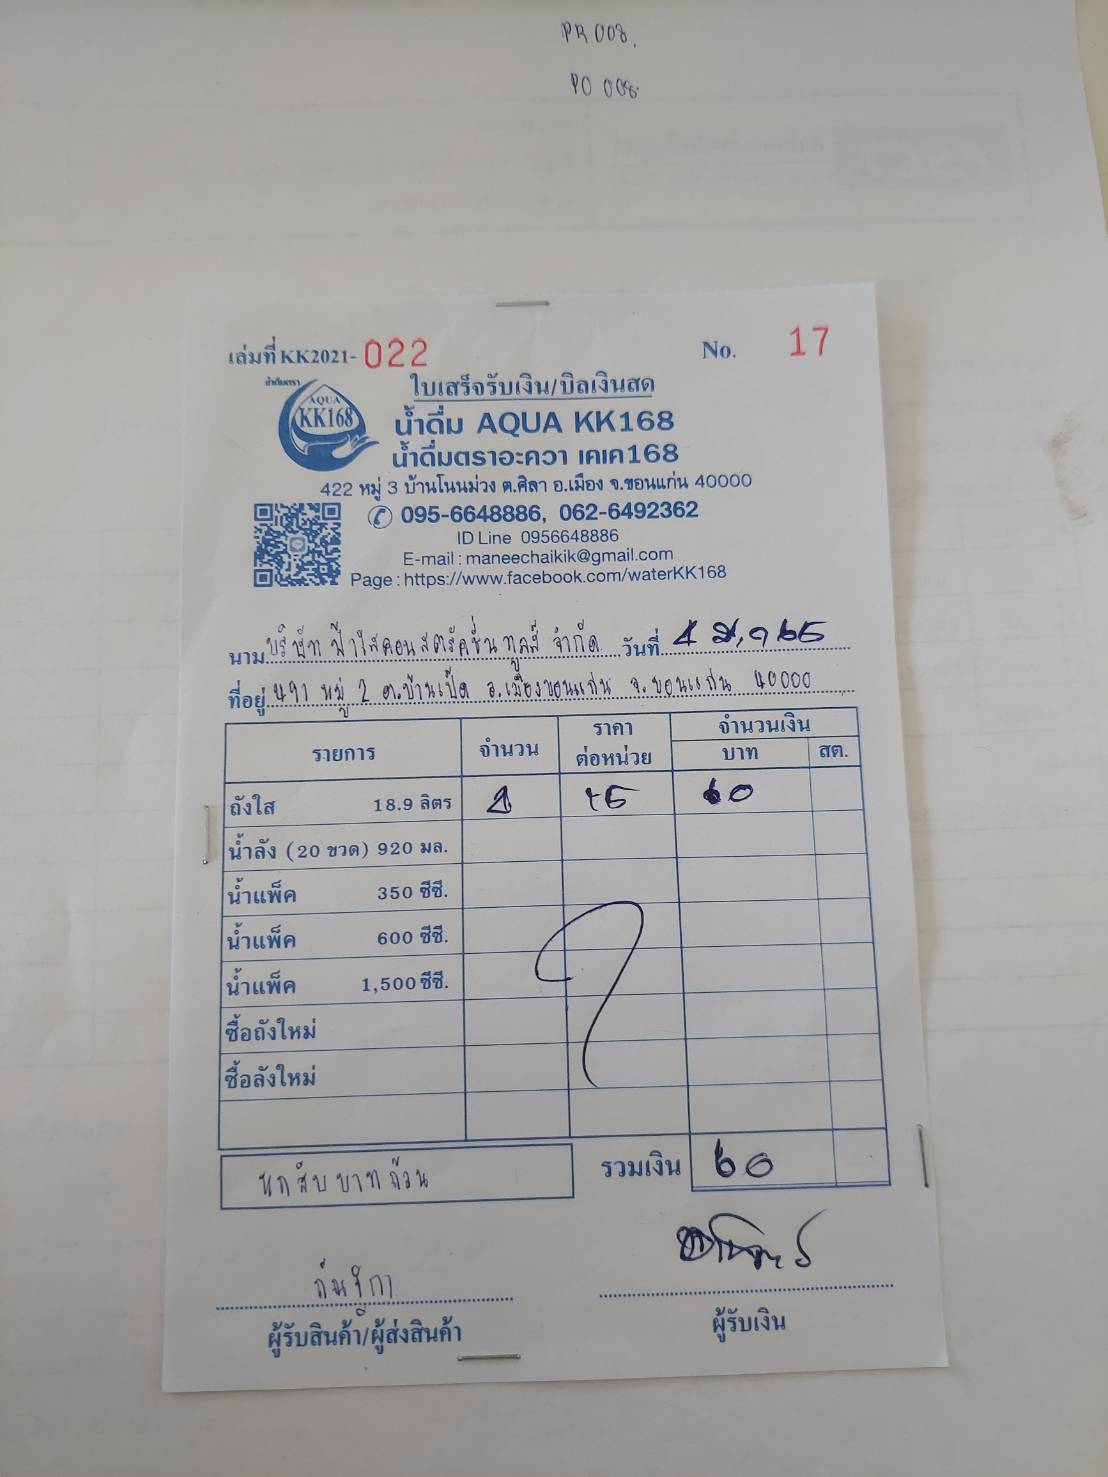 PR 008.
PO 008.
เล่มที่ KK2021- 022 No. 17
ใบเสร็จรับเงิน/บิลเงินสด
น้ำดื่มตรา
AQUA
KK168
น้ำดื่ม AQUA KK168
น้ำดื่มตราอะควา เคเค168
422 หมู่ 3 บ้านโนนม่วง ต.ศิลา อ.เมือง จ.ขอนแก่น 40000
095-6648886, 062-6492362
ID Line 0956648886
E-mail : maneechaikik@gmail.com
Page : https://www.facebook.com/waterKK168
นาม บริษัท ฟ้าใสคอนสตรัคชั่น ทูลส์ จำกัด วันที่
ที่อยู่ 491 หมู่ 2 ต.บ้านเป็ด อ.เมืองขอนแก่น จ.ขอนแก่น 40000
รายการ จำนวน ราคาต่อหน่วย จำนวนเงิน
บาท สต.
ถังใส 18.9 ลิตร 60
น้ำลัง (20 ขวด) 920 มล.
น้ำแพ็ค 350 ซีซี.
น้ำแพ็ค 600 ซีซี.
น้ำแพ็ค 1,500 ซีซี.
ซื้อถังใหม่
ซื้อลังใหม่
หกสิบบาทถ้วน รวมเงิน 60
ผู้รับสินค้า/ผู้ส่งสินค้า ผู้รับเงิน